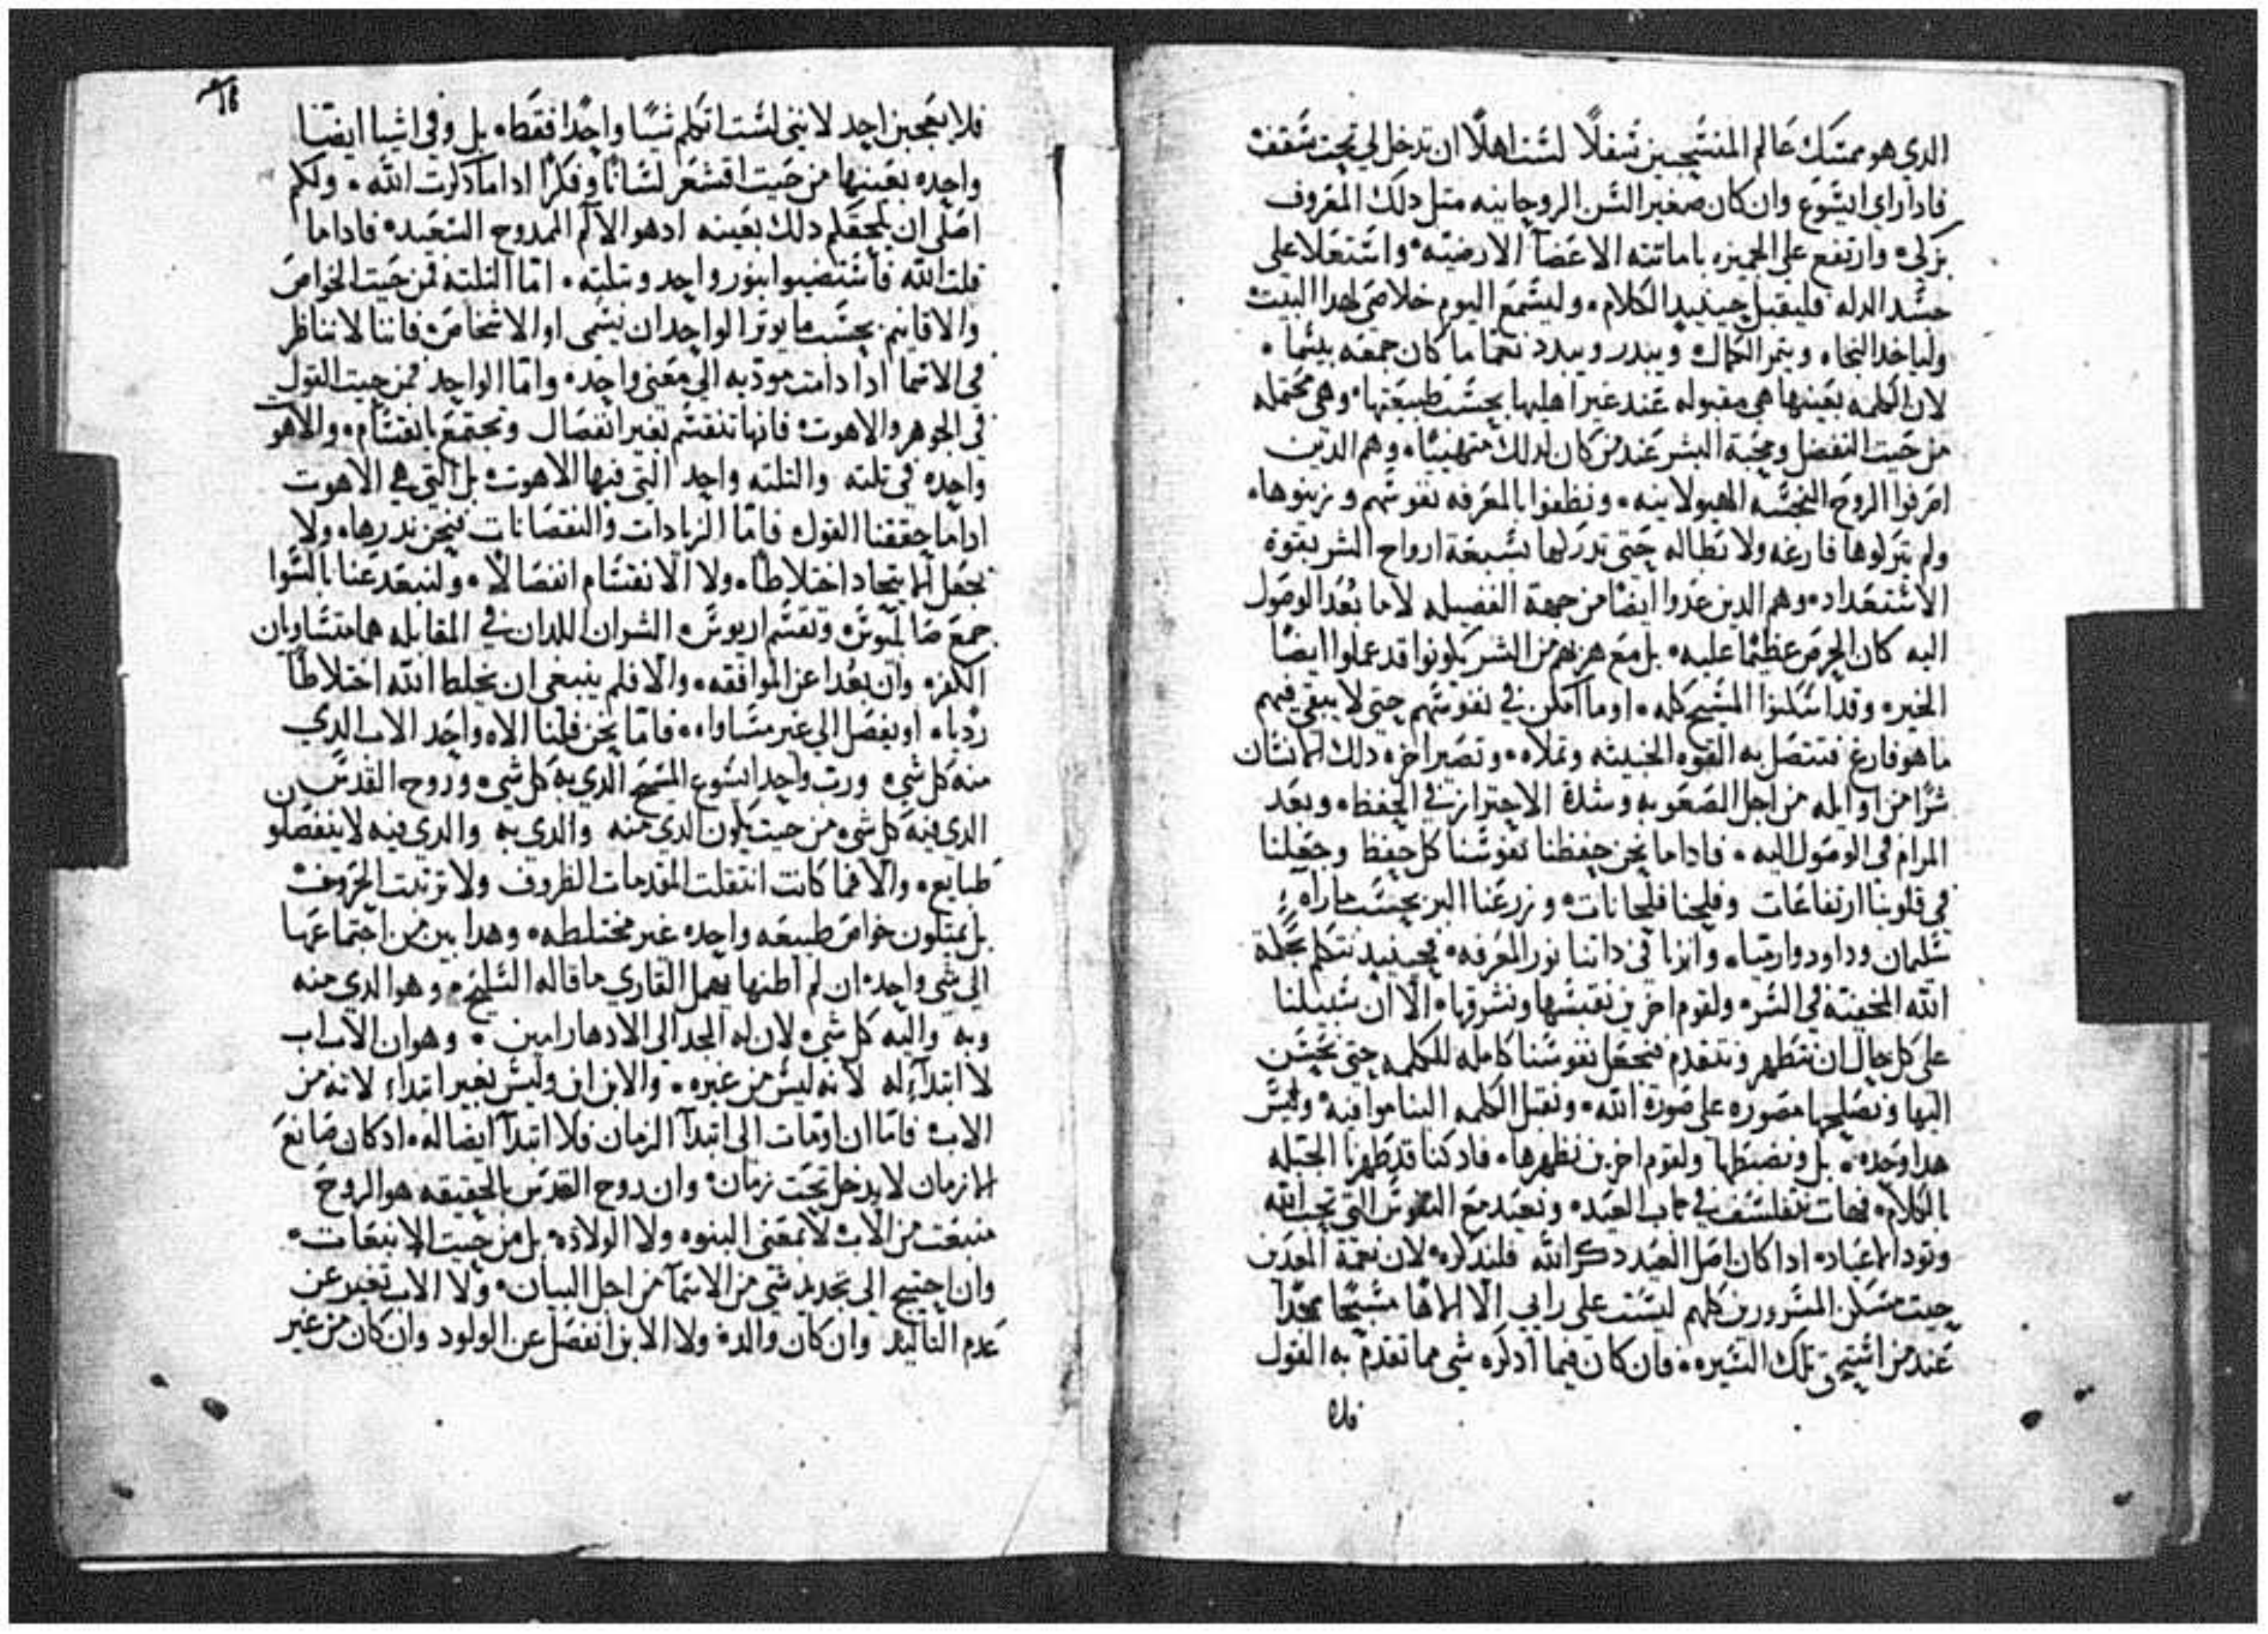 الدي هو ممسك عالم المنتسجين سفلًا لست اهلًا ان تدخل لي تحت سقف
فادا راي ايسوع وان كان صغير السن الروحانيه متل دلك المعروف
بزكي وارتفع على الجميزه باماتته الاعضآ الارضيه واستعلا على
جسد الدله فليقبل حينيدٍ الكلام وليسمع اليوم خلاصي لهدا البيت
ولياخد النجاه ويتمر الكمال ويبدر ويبدد نعمًا ما كان جمعه بيسًا
لان الكلمه بعينها هي مقبوله عند غير اهليها بحسب طبيعتها وهي محتمله
من حيت التفضل ومحبة البشر عند من كان لدلك متهييًا وهم الدين
اصرفوا الروح النجسه الهيولانيه ونظفوا بالمعرفه نفوسهم وزينوها
ولم يتركوها فارغه ولا بطاله حتى تدركها بسبعة ارواح الشر بقوة
الاستعداد وهم الدين عدوا ايضًا من جهة الفضيله لاما بعُد الوصول
اليه كان الحرص عظيمًا عليه بل مع هربهم من الشر يكونوا قد عملوا ايضًا
الخير وقد اسكنوا المسيح كله او ما امكن في نفوسهم حتى لا يبقى فيهم
ما هو فارغ فتتصل به القوه الخبيته وتملاه وتصير اخره دلك الانسان
شرًا من اوايله من اجل الصعوبه وشدة الاحتراز في الحفظ وبعد
المرام في الوصول اليه فادا ما نحن حفظنا نفوسنا كل حفظ وجعلنا
في قلوبنا ارتفاعات وفلحنا فلحانات وزرعنا البر بحسب ما راه
سليمان وداود وارميا وانرنا في داتنا نور المعرفه فحينيدٍ نتكلم بحكمة
الله المخفيه في السر ولقوم اخرين نقبسها ونشرقها الا ان سبيلنا
على كل حال ان نتطهر ونتقدم فنجعل نفوسنا كامله للكلمه حتى نحسن
اليها ونصلحها مصوره على صورة الله ونقبل الكلمه الينا موافيه وليس
هدا وحده بل ونضبطها ولقوم اخرين نظهرها فادكنا قد طهرنا الجبله
بالكلام فهات نتفلسف في باب العيد ونعيد مع النفوس التي تحب الله
وتود الاعياد ادا كان اصل العيد دكر الله فلندكره لان نغمة المعدين
حيت مسكن المسرورين كلهم ليست على رايي الا الاهًا مسبحًا ممجدًا
عند من استحق تلك السيره فان كان فيما ادكره شي مما تقدم به القول
فلا
16
فلا يعجبن احد لانني لست اتكلم شيًا واحدًا فقط بل وفي اشيا ايضًا
واحده بعينها من حيت اقشعر لسانًا وفكرًا ادا ما دكرت الله ولكم
اصلي ان يلحقكم دلك بعينه ادهو الالم الممدوح السعيد فاداما
قلت الله فاستضيوا بنور واحد وتلته اما التلته فمن حيت الخواص
والاقانيم بحسب ما يوتر الواحد ان يسمى او الاشخاص فاننا لا نناظر
في الاسما ادا دامت موديه الى معنى واحد واما الواحد فمن حيت القول
في الجوهر والاهوت فانها تنقسم بغير انفصال وتجتمع بانقسام والاهو
واحده في تلته والتلته واحد التي فيها الاهوت بل التي هي الاهوت
اداما حققنا القول فاما الزيادات والنقصانات فنحن ندرها ولا
نجعل الايتحاد اختلاطًا ولا الانقسام انفصالًا ولنبعد عنا بالسوا
جمع صابليوس وتقسم اريوس الشران اللدان في المقابله هما متساويان
الكفر وان بعُدا عن الموافقه والا فلم ينبغي ان يخلط الله اختلاطًا
رديا او يفصل الى غير مساواه فاما نحن فلنا الاه واحد الاب الدي
منه كل شي ورب واحد ايسوع المسيح الدي به كل شي وروح القدس
الدي فيه كل شي من حيت يكون الدي منه والدي به والدي فيه لا ينفصلون
طبايع والا فما كانت انتقلت المقدمات الظروف ولا ترتيب الحروف
بل يمتلون خواص طبيعه واحده غير مختلطه وهدا بين من اجتماعها
الى شي واحد ان لم اظنها يهمل القاري ما قاله السليح وهو الدي منه
وبه واليه كل شي لان له المجد الى الادهار امين وهو ان الاب اب
لا ابتدآ له لانه ليس من غيره والابن ابن وليس بغير ابتداء لانه من
الاب فاما ان اومات الى ابتدآ الزمان فلا ابتدآ ايضا له ادكان صانع
الازمان لا يدخل تحت زمان وان روح القدس بالحقيقه هو الروح
منبعت من الاب لا بمعنى البنوه ولا الولاده بل من حيت الانبعات
وان احتيج الى تجديد شي من الاسمآ من اجل البيان ولا الاب تغير عن
عدم التاليد وان كان والده ولا الابن انفصل عن الولود وان كان من غير